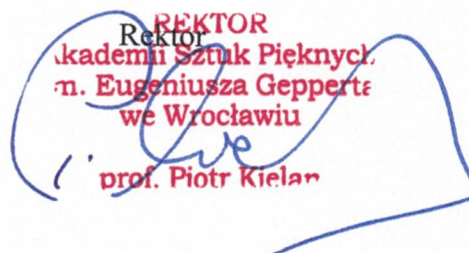 REKTOR
Rektor
Akademii Sztuk Pięknych
im. Eugeniusza Gepperta
we Wrocławiu
prof. Piotr Kielan